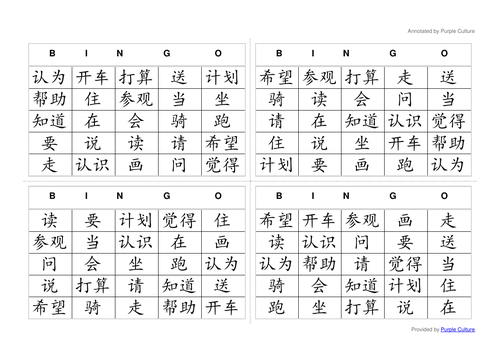 Annotated by Purple Culture
B I N G O
认为 开车 打算 送 计划
帮助 住 参观 当 坐
知道 在 会 骑 跑
要 说 读 请 希望
走 认识 画 问 觉得
B I N G O
希望 参观 打算 走 送
骑 读 会 问 当
请 在 知道 认识 觉得
住 说 坐 开车 帮助
计划 要 画 跑 认为
B I N G O
读 要 计划 觉得 住
参观 当 认识 在 画
问 会 坐 跑 认为
说 打算 请 知道 送
希望 骑 走 帮助 开车
B I N G O
希望 开车 参观 画 走
读 认识 问 要 送
认为 帮助 请 觉得 当
住 会 骑 计划 知道
跑 坐 打算 说 在
Provided by Purple Culture